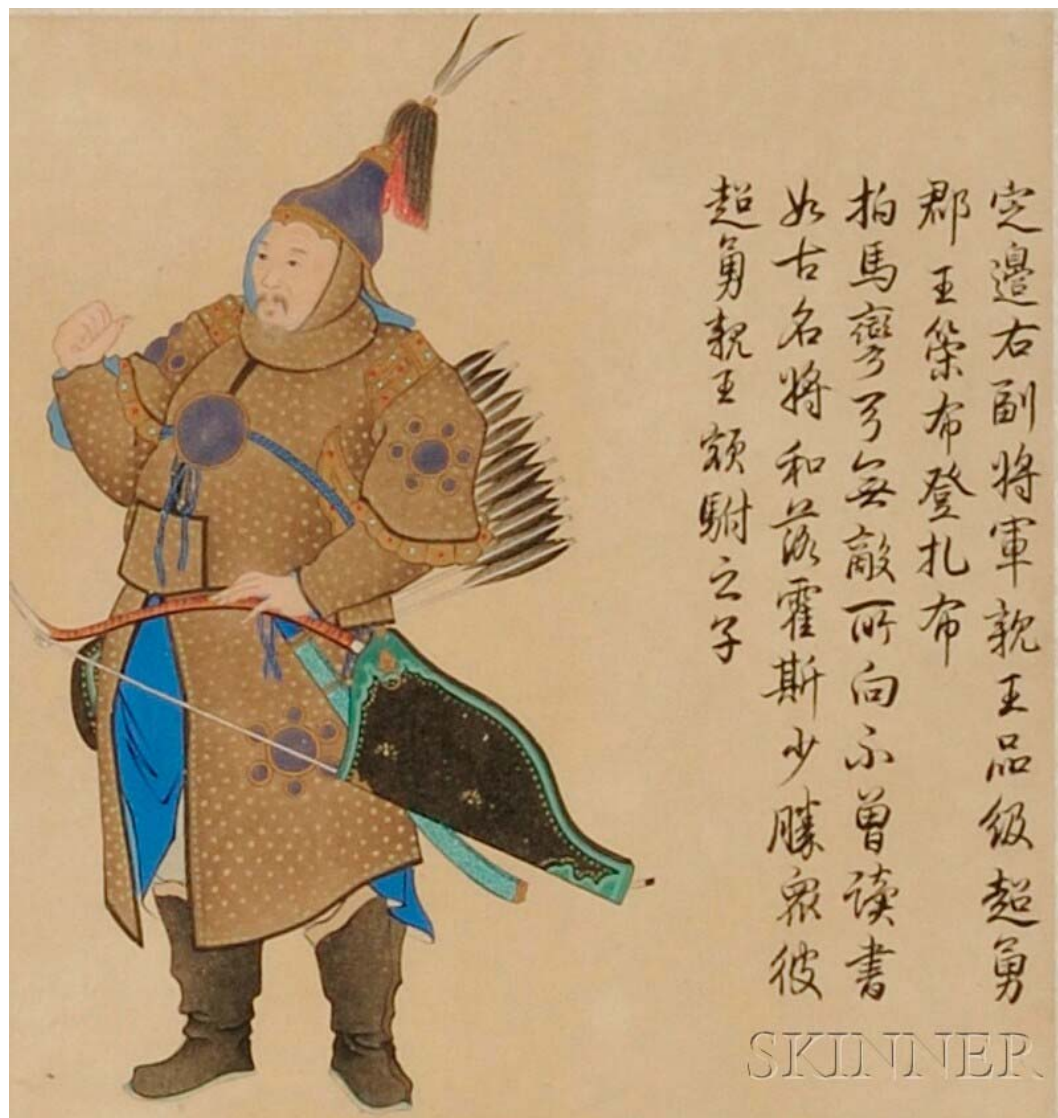 定邊右副將軍親王品級超勇
郡王策布登扎布
拍馬彎弓無敵所向不曾讀書
如古名將和落霍斯少勝眾彼
超勇親王額駙之子
SKINNER